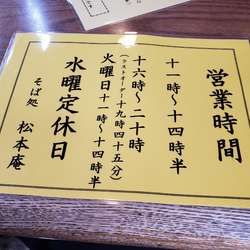 営業時間
十一時〜十四時半
十六時〜二十時
(ラストオーダー十九時四十五分)
火曜日十一時〜十四時半
水曜定休日
そば処 松本庵